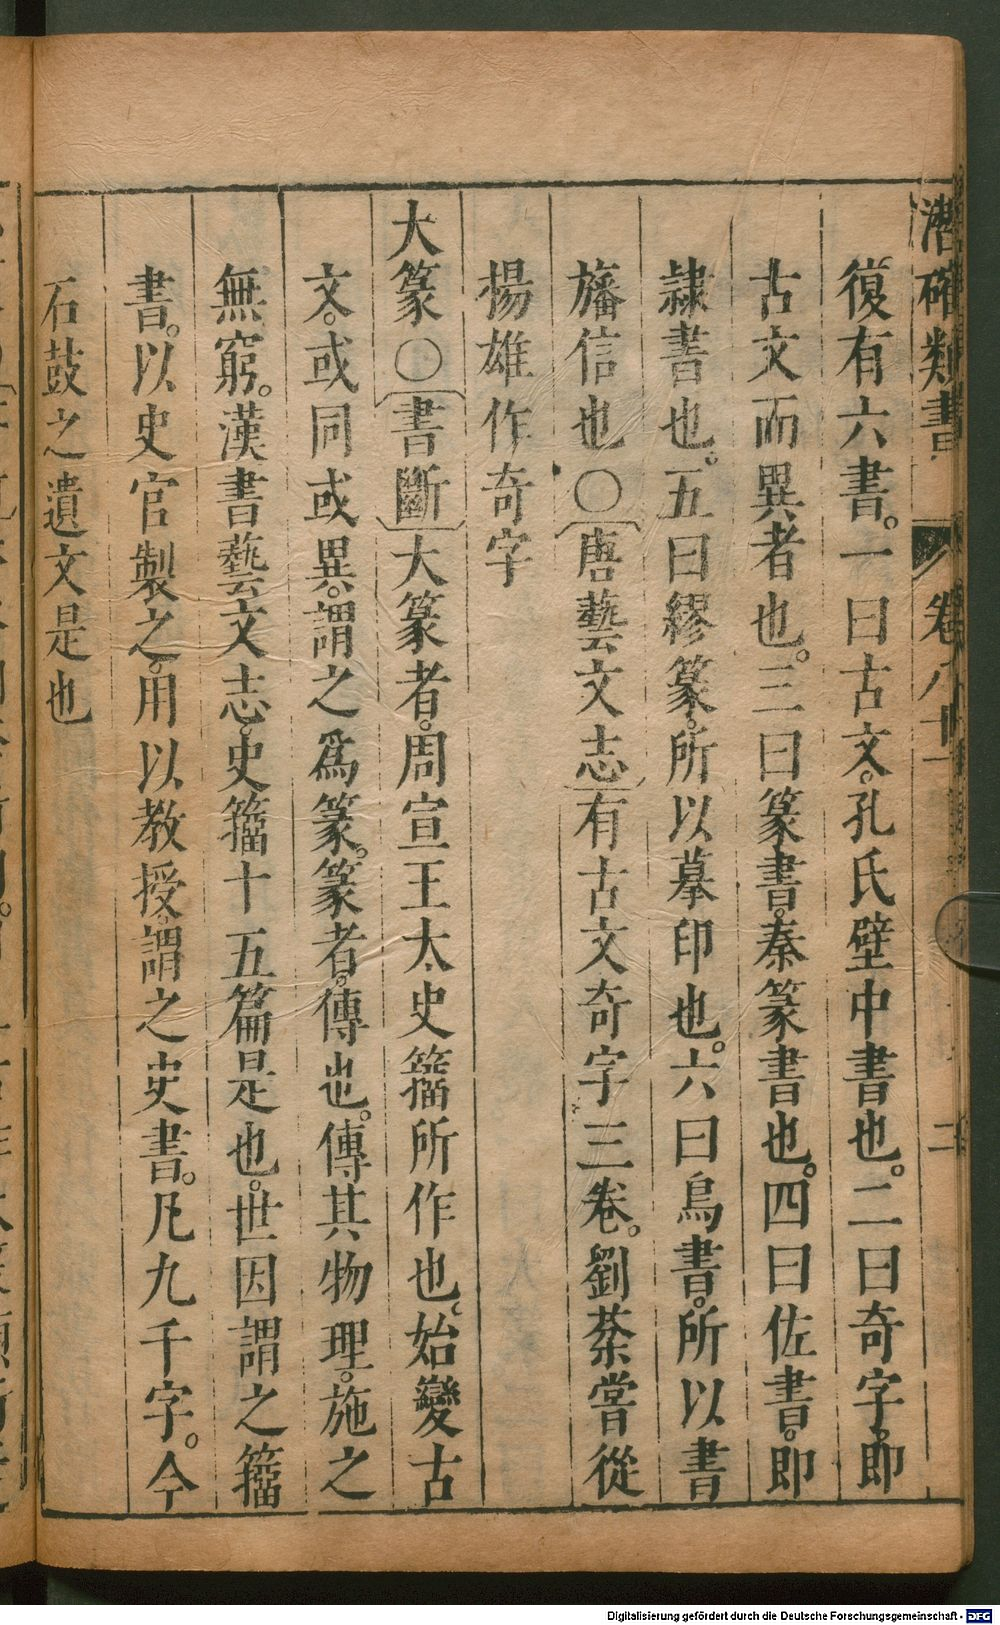 潛確類書 卷八十一 二
復有六書。一曰古文。孔氏壁中書也。二曰奇字。即
古文而異者也。三曰篆書。秦篆書也。四曰佐書。即
隷書也。五曰繆篆。所以摹印也。六曰鳥書。所以書
旛信也○〔唐藝文志〕有古文奇字三卷。劉棻嘗從
揚雄作奇字
大篆○〔書斷〕大篆者。周宣王太史籒所作也。始變古
文。或同或異。謂之爲篆。篆者。傳也。傳其物理。施之
無窮。漢書藝文志。史籒十五篇是也。世因謂之籒
書。以史官製之。用以教授。謂之史書。凡九千字。今
石鼓之遺文是也
Digitalisierung gefördert durch die Deutsche Forschungsgemeinschaft - DFG